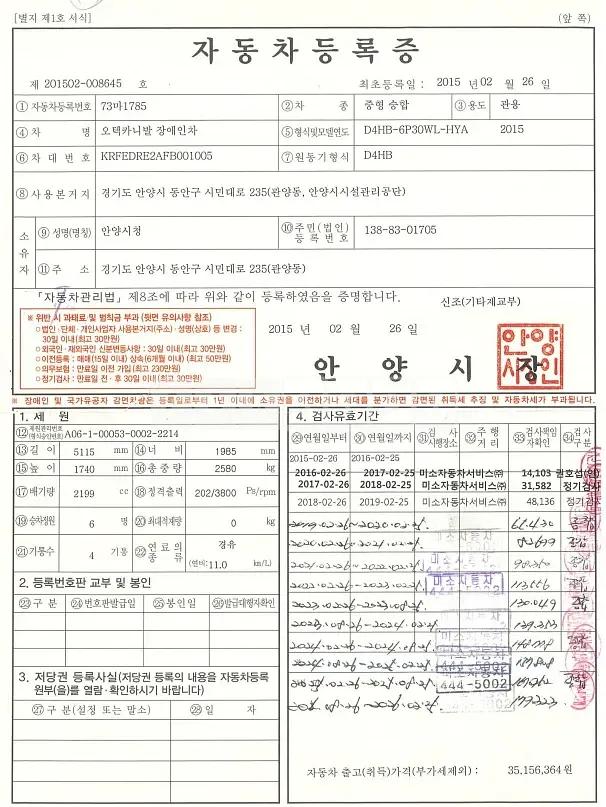 [별지 제1호 서식] (앞 쪽)
자동차등록증
제 201502-008645 호 최초등록일 : 2015 년 02 월 26 일
① 자동차등록번호 73마1785 ② 차 종 중형 승합 ③ 용도 관용
④ 차 명 오텍카니발 장애인차 ⑤ 형식및모델연도 D4HB-6P30WL-HYA 2015
⑥ 차 대 번 호 KRFEDRE2AFB001005 ⑦ 원동기형식 D4HB
⑧ 사 용 본 거 지 경기도 안양시 동안구 시민대로 235(관양동, 안양시시설관리공단)
소유자 ⑨ 성명(명칭) 안양시청 ⑩ 주민(법인)등록번호 138-83-01705
⑪ 주 소 경기도 안양시 동안구 시민대로 235(관양동)
「자동차관리법」 제8조에 따라 위와 같이 등록하였음을 증명합니다. 신조(기타제교부)
※ 위반 시 과태료 및 범칙금 부과 (뒷면 유의사항 참조)
○ 법인·단체·개인사업자 사용본거지(주소)·성명(상호) 등 변경 :
30일 이내(최고 30만원)
○ 외국인·재외국인 신분변동사항 : 30일 이내(최고 30만원)
○ 이전등록 : 매매(15일 이내) 상속(6개월 이내) (최고 50만원)
○ 의무보험 : 만료일 이전 가입(최고 230만원)
○ 정기검사 : 만료일 전·후 30일 이내(최고 30만원)
2015 년 02 월 26 일
안 양 시 장
안양시장인
※ 장애인 및 국가유공자 감면차량은 등록일로부터 1년 이내에 소유권을 이전하거나 세대를 분가하면 감면된 취득세 추징 및 자동차세가 부과됩니다.
1. 제 원
⑫ 제원관리번호(형식승인번호) A06-1-00053-0002-2214
⑬ 길 이 5115 mm ⑭ 너 비 1985 mm
⑮ 높 이 1740 mm ⑯ 총 중 량 2580 kg
⑰ 배기량 2199 cc ⑱ 정격출력 202/3800 Ps/rpm
⑲ 승차정원 6 명 ⑳ 최대적재량 0 kg
㉑ 기통수 4 기통 ㉒ 연료의 종류 경유 (연비: 11.0 km/L)
2. 등록번호판 교부 및 봉인
㉓ 구 분 ㉔ 번호판발급일 ㉕ 봉인일 ㉖ 발급대행자확인
3. 저당권 등록사실(저당권 등록의 내용을 자동차등록
원부(을)를 열람·확인하시기 바랍니다)
㉗ 구 분(설정 또는 말소) ㉘ 일 자
4. 검사유효기간
㉙ 연월일부터 ㉚ 연월일까지 ㉛ 검 사 시행장소 ㉜ 주 행 거 리 ㉝ 검사책임자확인 ㉞ 검사구분
2015-02-26 2016-02-25
2016-02-26 2017-02-25 미소자동차서비스㈜ 14,103
2017-02-26 2018-02-25 미소자동차서비스㈜ 31,582 정기검사
2018-02-26 2019-02-25 미소자동차서비스㈜ 48,136 정기검
2019.02.26~2020.02.25.
2020.02.26~2021.02.25.
2021.02.26~2022.02.25. 미소자동차
2022.02.26~2023.02.25. 미소자동차 444-5002
2023.02.26~2023.08.25. 130.049
2023.08.26~2024.02.25. 139.353
2024.02.26~2024.08.25. 미소자동차
2024.08.26~2025.02.25. 미소자동차 444-5002
444-5002
자동차 출고(취득)가격(부가세제외) : 35,156,364원